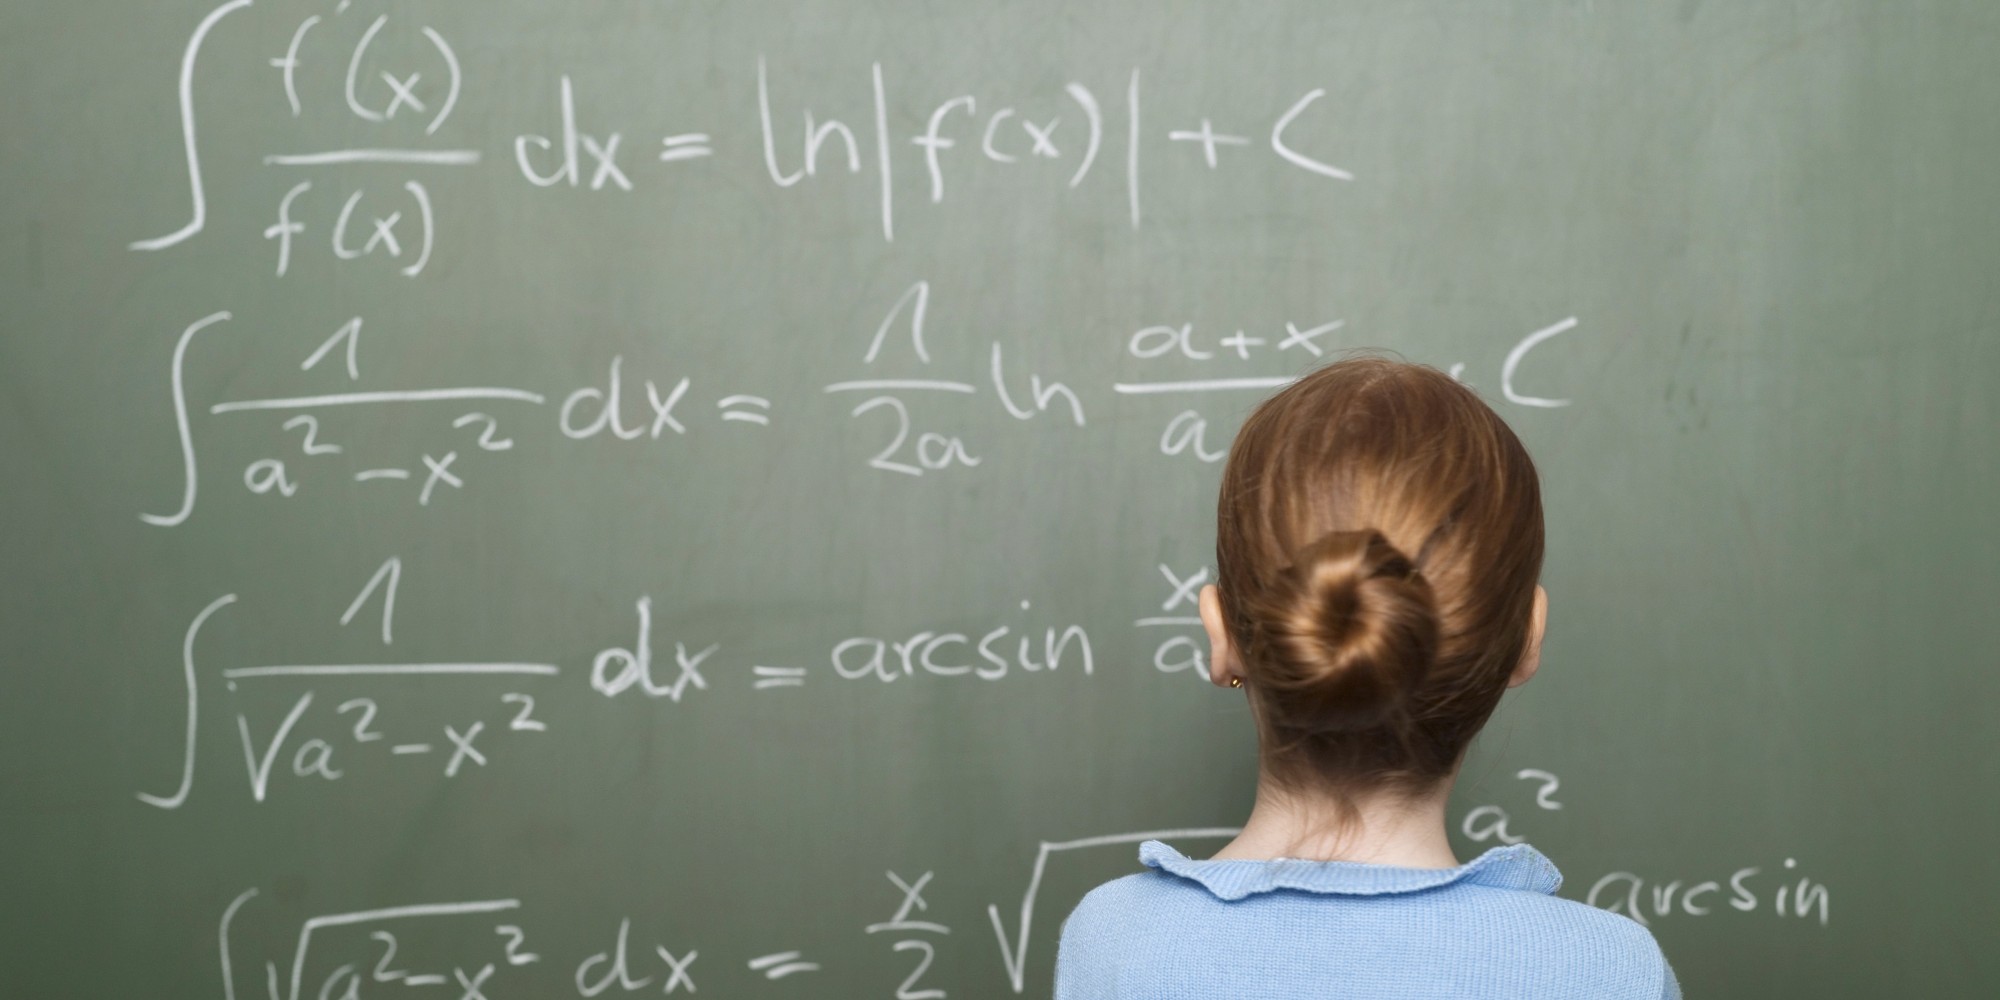 ∫ f'(x)/f(x) dx = ln|f(x)| + C
∫ 1/(a² - x²) dx = 1/(2a) ln (a+x)/a C
∫ 1/√(a² - x²) dx = arcsin x/a
∫ √(a² - x²) dx = x/2 √ a² arcsin